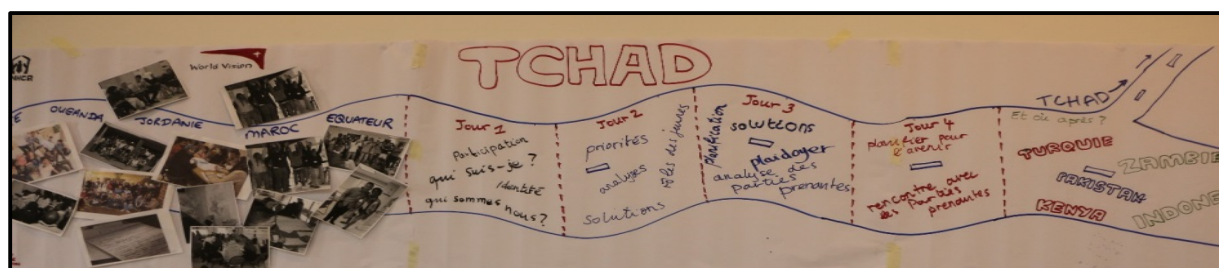 World Vision
TCHAD
OUGANDA
JORDANIE
MAROC
EQUATEUR
Jour 1
Participation
qui suis-je?
identité
qui sommes nous?
Jour 2
priorités
analyses
solutions
rôles des jeunes
Planification
Jour 3
solutions
plaidoyer
analyse des
parties
prenantes
Jour 4
planifier pour
l'avenir
rencontre avec
les parties
prenantes
TCHAD
Et où après?
TURQUIE
ZAMBIE
PAKISTAN
KENYA